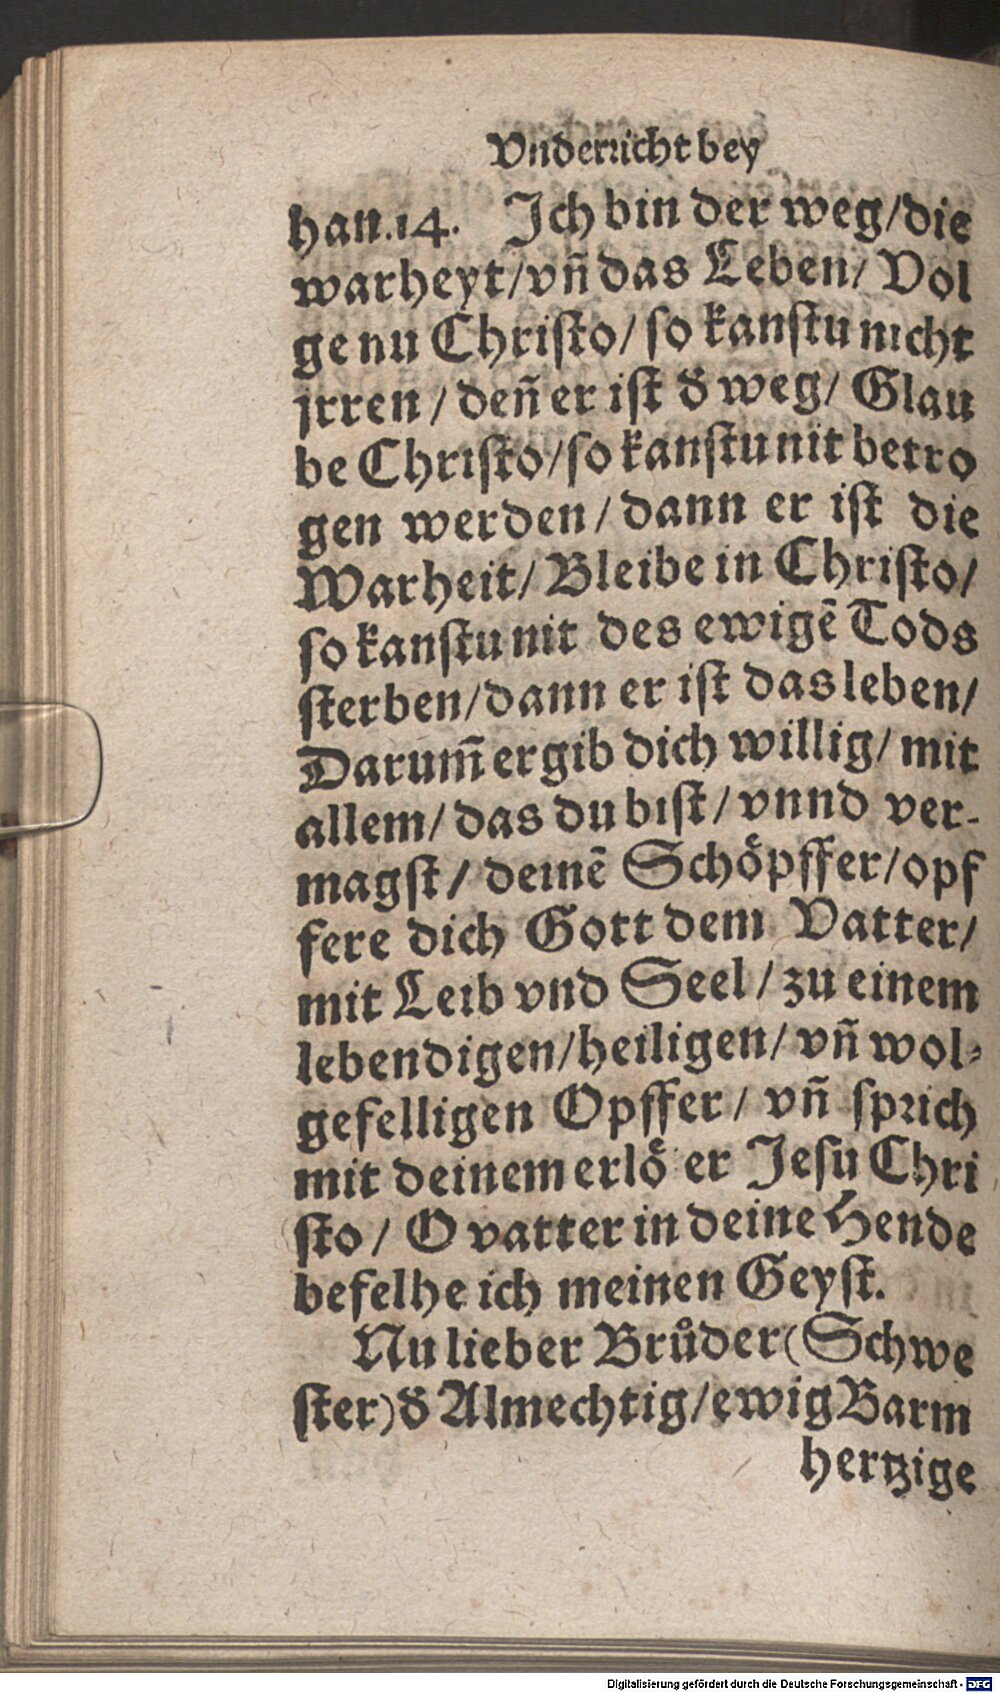 Vnderricht bey
han. 14. Ich bin der weg/die
warheyt/vñ das Leben/ Vol
ge nu Christo/ so kanstu nicht
jrren/ deñ er ist d̕ weg/ Glau
be Christo/so kanstu nit betro
gen werden/dann er ist die
Warheit/ Bleibe in Christo/
so kanstu nit des ewigẽ Tods
sterben/dann er ist das leben/
Darum̃ ergib dich willig/ mit
allem/ das du bist/ vnnd ver-
magst/ deinẽ Schöpffer/opf
fere dich Gott dem Vatter/
mit Leib vnd Seel/ zu einem
lebendigen/heiligen/ vñ wol-
gefelligen Opffer/ vñ sprich
mit deinem erlö er Jesu Chri
sto/ O vatter in deine Hende
befelhe ich meinen Geyst.
Nu lieber Brůder (Schwe
ster) d̕ Almechtig/ewig Barm
hertzige
Digitalisierung gefördert durch die Deutsche Forschungsgemeinschaft - DFG